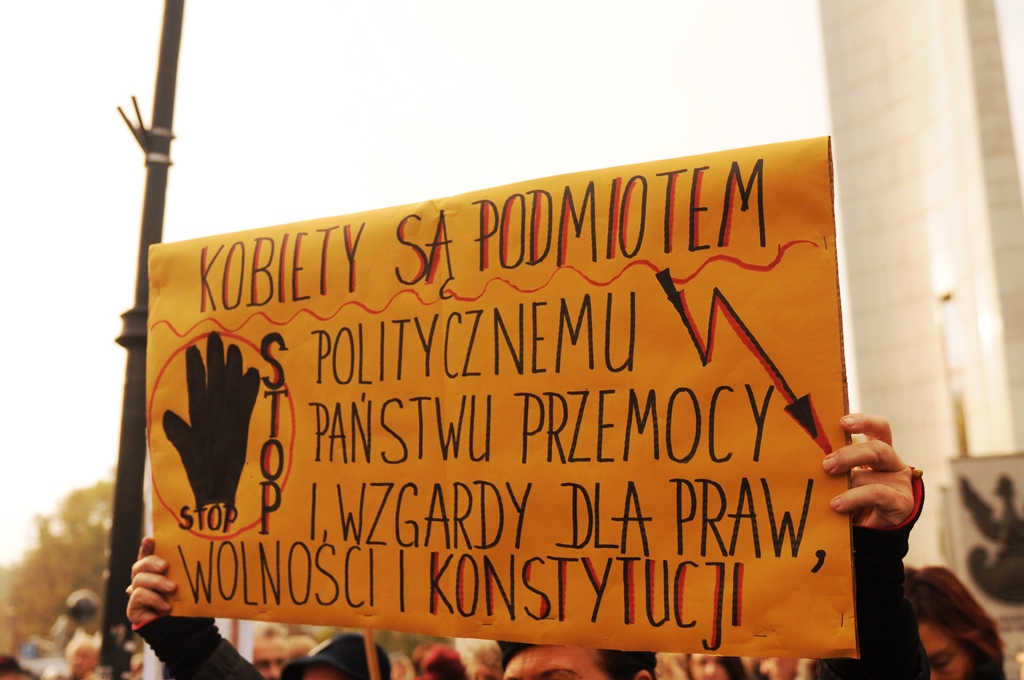 KOBIETY SĄ PODMIOTEM
STOP
STOP
POLITYCZNEMU
PAŃSTWU PRZEMOCY
I, WZGARDY DLA PRAW,
WOLNOŚCI I KONSTYTUCJI